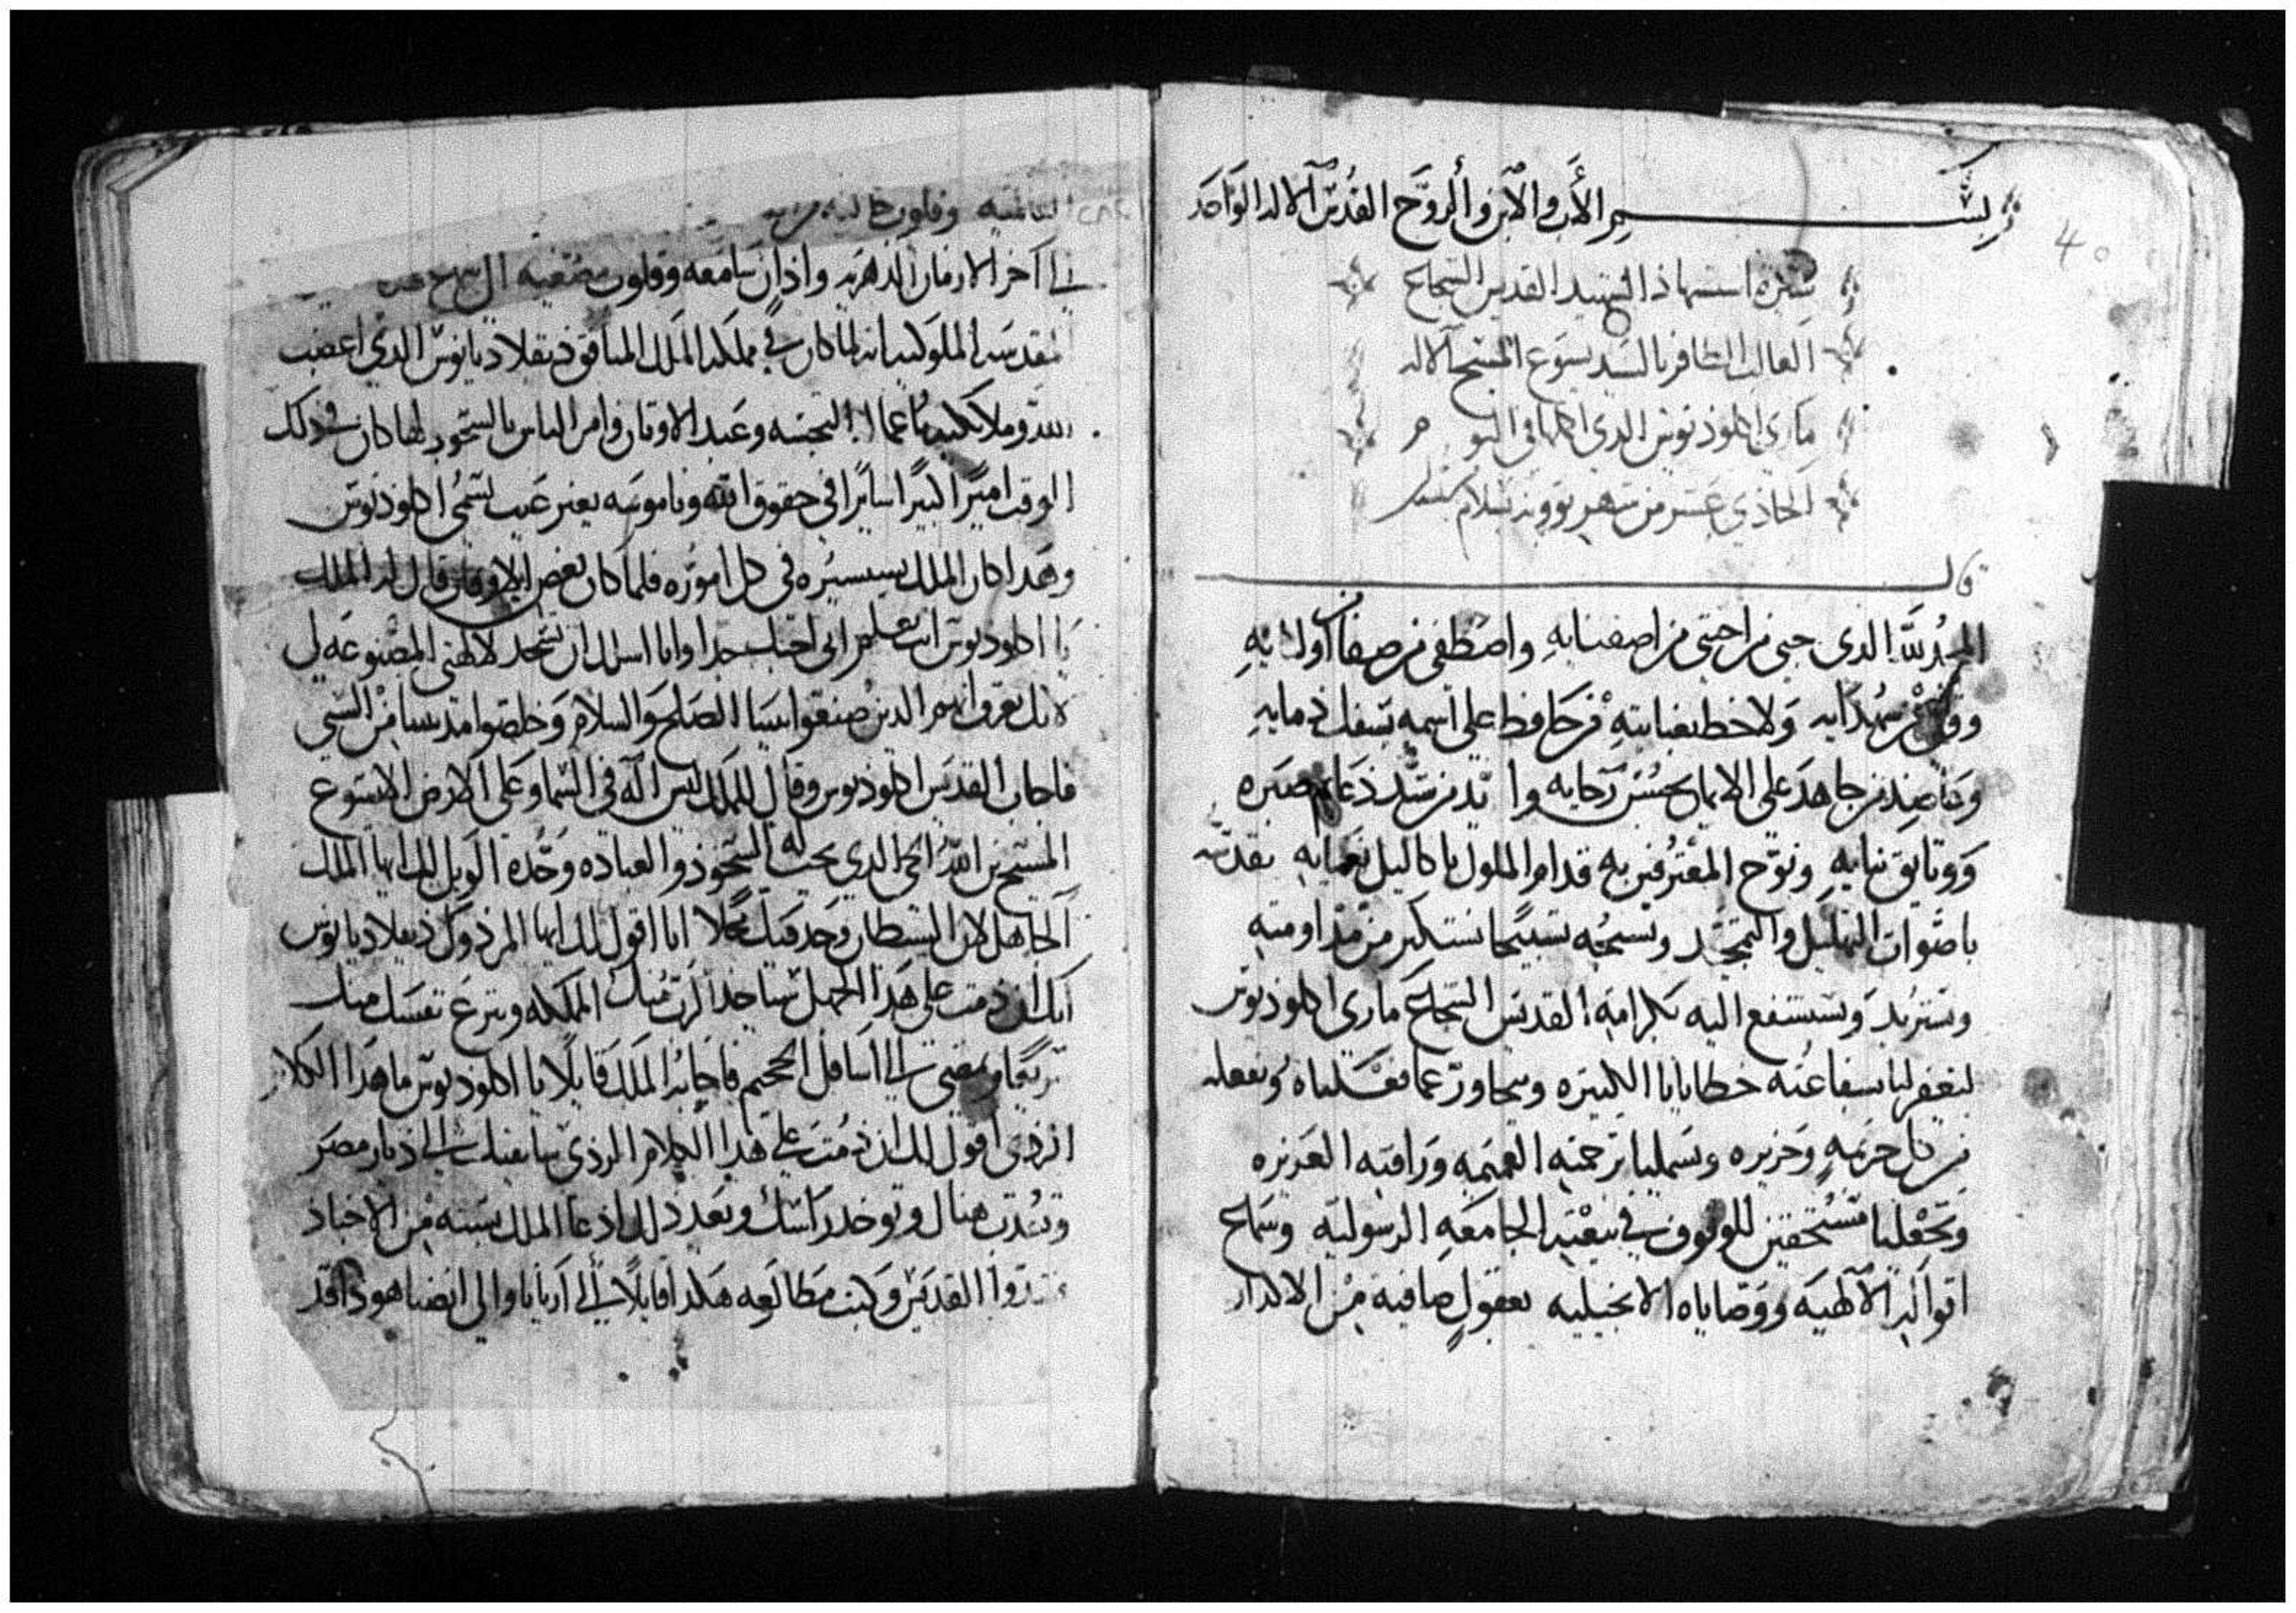 بسم الأب والآبن وألروّح القُدس الآلاه الوَاحَد
سيرة استشهاذ الشهيد القديس الشجاع
الغالب الظافر بالسيد يسوع المسيح الآلاه
مارى اقلوذيوس الدي اكملها في اليوم
الحاذي عشر من شهر بوونه بسلام
قال
المجد لله الدي حبى من احبى من اصفيايهِ واصطفى من صفا اوليايهِ
ووفق من شهدايه وَلاحظ بعنايتهِ من حَافظ على اسمه بسفك ذمايهِ
وَعاضد من جاهدَ على الايمان بحسُن رَجايه وايّد من شيّد ذعايم صبره
وَوتايق بنايهِ وتوّج المعترفين به قدام الملوك باكاليل نعمايهِ نقدّسه
باصوات التهليل والتمجيد ونسبحُه تسبيحًا نستكير من مداومته
ونستزيد وَنستشفع اليه بكرامة القديس الشجاع مارى اقلوذيوس
ليغفر لنا بشفاعته خطايانا الكتيره ويتجاوز عما فعَلناه ونفعله
من كل جريمهٍ وَجريره ويشملنا برحمته العميمه وَرافته العزيزه
وَيجعْلنا مُستحقين للوقوف في بيعْتهِ الجامعَهِ الرسوليّه وسَماع
اقوالهِ الآلهيَه ووَصاياه الانجيليه بعقولٍ صَافيه من الاكدار
العالميه وقلوب خاليه من
في اخر الازمان الدهريه واذان سَامعه وقلوب
القديسَين الملوكيين انه لما كان في مملكة الملك المنافق ذيقلاديانوس الدي اغضب
الله وملايكته باعماله النجسَه وعَبد الاوتان وامر الناس بالسّجود لها كان في ذلك
الوقت اميرًا كبيرًا سايرًا في حقوق الله وناموسَه بغير عَيب يسَمى اقلوذيوس
وهَدا كان الملك يستشيره في كل اموره فلما كان بعض الاوقات قال له الملك
يا اقلوذيوس انت تعلم انى احبك جدا وانا اسالك ان تسجد لالهتى المصنوعَه لي
لانك تعرف انهم الدين صنعوا بيننا الصلح وَالسلام وَخلصوا مدينتنا من السبي
فاجاب القديس اقلوذيوس وقال للملك ليس الَه في السّما وعَلى الارض الا يسَوع
المسَيح بن الله الحى الدي يجب له السّجوذ والعباده وَحْده الوَيل لك ايها الملك
الجاهل لان الشيطان وَجد فيك محلا انا اقول لك ايها المرذوَل ذيقلاديانوس
انك ان ذمت على هَذا الجهل تنزع منك المملكه وينزع نفسَك منك
سريعًا وتمضي الى اسَافل الجحيم فاجابه الملك قايلًا يا اقلوذيوس ما هَدا الكلام
الردى اقول لك ان ذمت على هدا الكلام الردَى سَانفيك الى ذيار مصرَ
وتعُدب هناك وتوخد راسَك وبعَد ذلك اذعا الملك بستهٍ من الاجناد
القديس وَكتب مَطالعَه هَكدا قايلًا الى اريانا والي انصنا هوذا قد